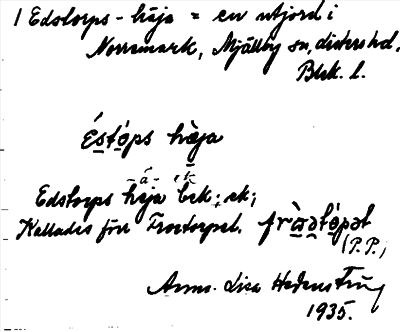 1 Edstorps-häja = en utjord i
Norremark, Mjällby sn, Listers hd.
Blek. l.
Éstóps hèja
-á- ek
Edstorps häja bek; ek;
Kallades förr Frostorpet. frò̱stó̱pət
(P.P.)
Anna-Lisa Hedenstrüg
1935.